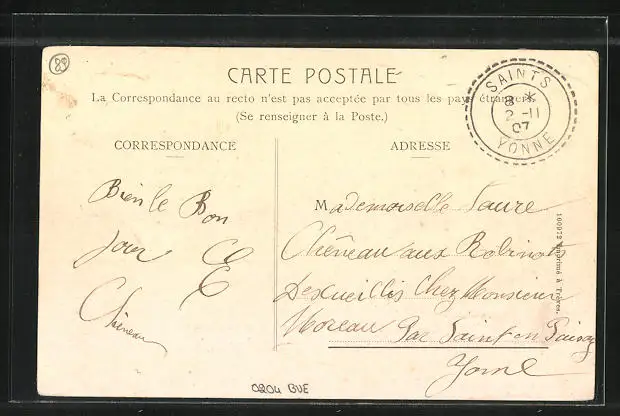 89
CARTE POSTALE
La Correspondance au recto n'est pas acceptée par tous les pays étrangers.
(Se renseigner à la Poste.)
SAINTS
8 *
2 -11
07
YONNE
CORRESPONDANCE
Bien le Bon
jour
Chêneau
ADRESSE
Mademoiselle Laure
Chêneau aux Robinots
Chez Monsieur
Moreau Par Saint en Puisay
Yonne
Imprimé à Trèves.
0204 BUE